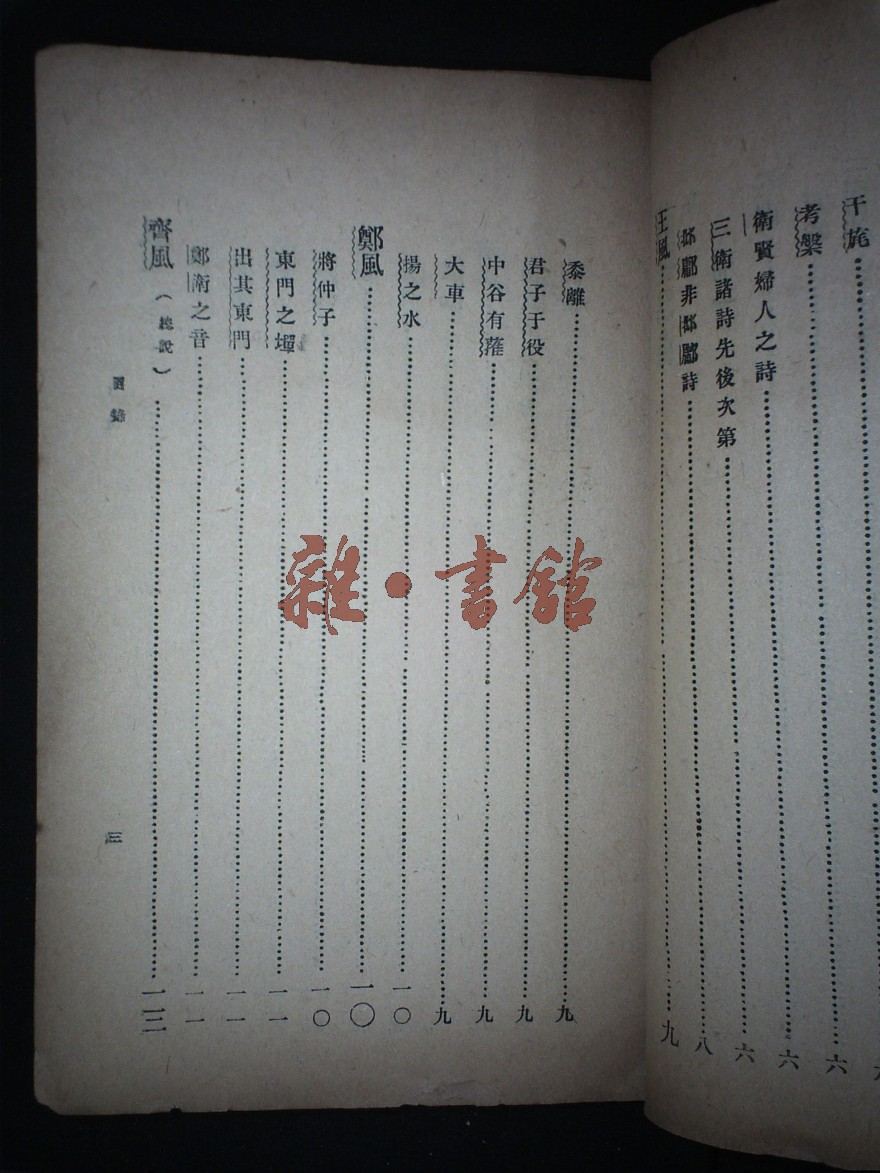 干旄……六
考槃……六
衛賢婦人之詩……六
三衛諸詩先後次第……六
邶鄘非邶鄘詩……八
王風……九
黍離……九
君子于役……九
中谷有蓷……九
大車……九
揚之水……一〇
鄭風……一〇
將仲子……一〇
東門之墠……一一
出其東門……一一
鄭衛之音……一一
齊風（總說）……一三
目錄
三
雜·書館